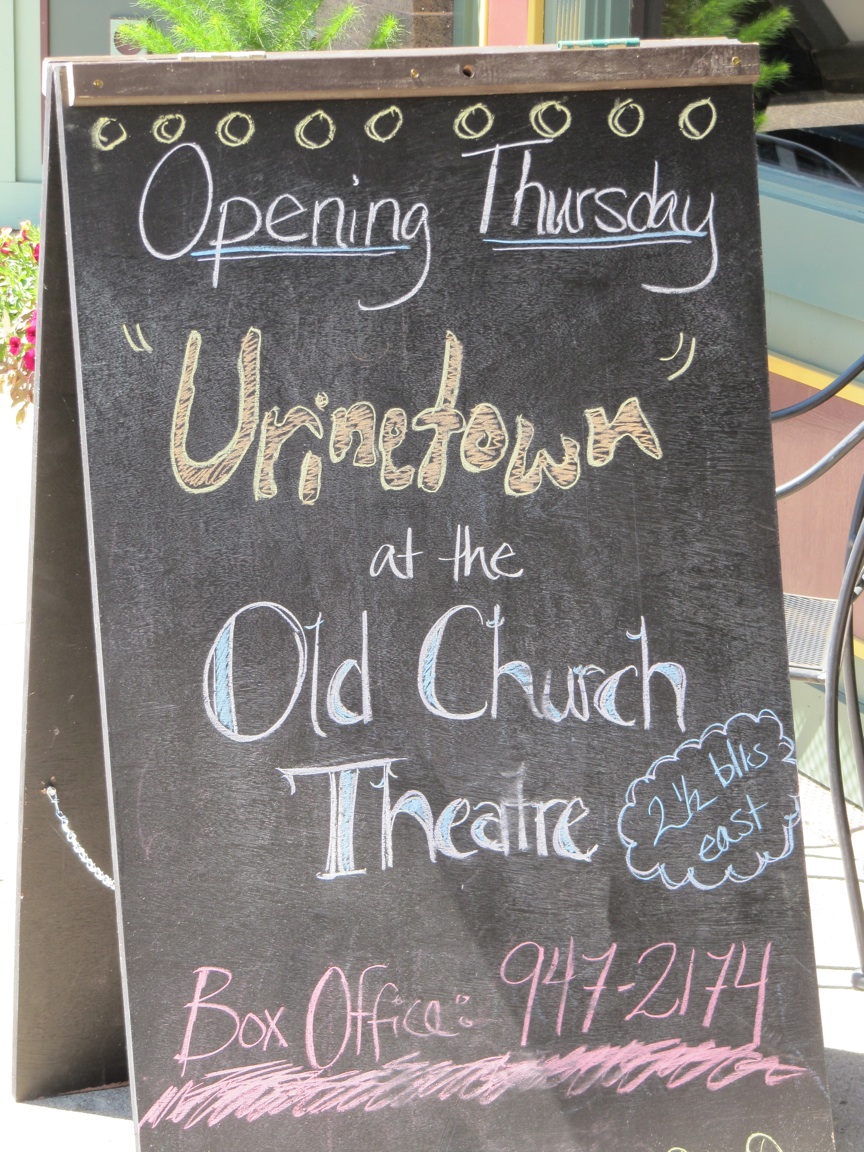 Opening Thursday
"Urinetown"
at the
Old Church
Theatre
2 1/2 blks
east
Box Office: 947-2174